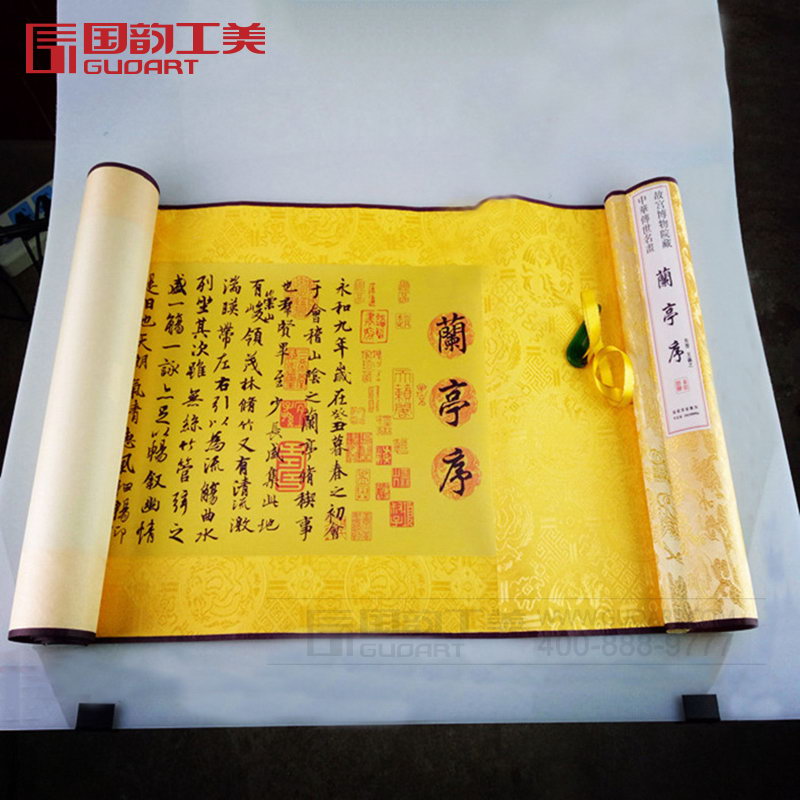 国韵工美
GUOART
故宮博物院藏
中華傳世名畫
蘭亭序
王羲之
蘭亭序
永和九年歲在癸丑暮春之初會
于會稽山陰之蘭亭脩稧事
也羣賢畢至少長咸集此地
有崇山峻領茂林脩竹又有清流激
湍暎帶左右引以為流觴曲水
列坐其次雖無絲竹管弦之
盛一觴一詠亦足以暢叙幽情
是日也天朗氣清惠風和暢仰
国韵工美
GUOART
400-888-9777